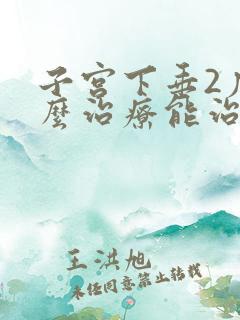 子宫下垂2
麼治療能治
王洪旭
未经同意禁止转载